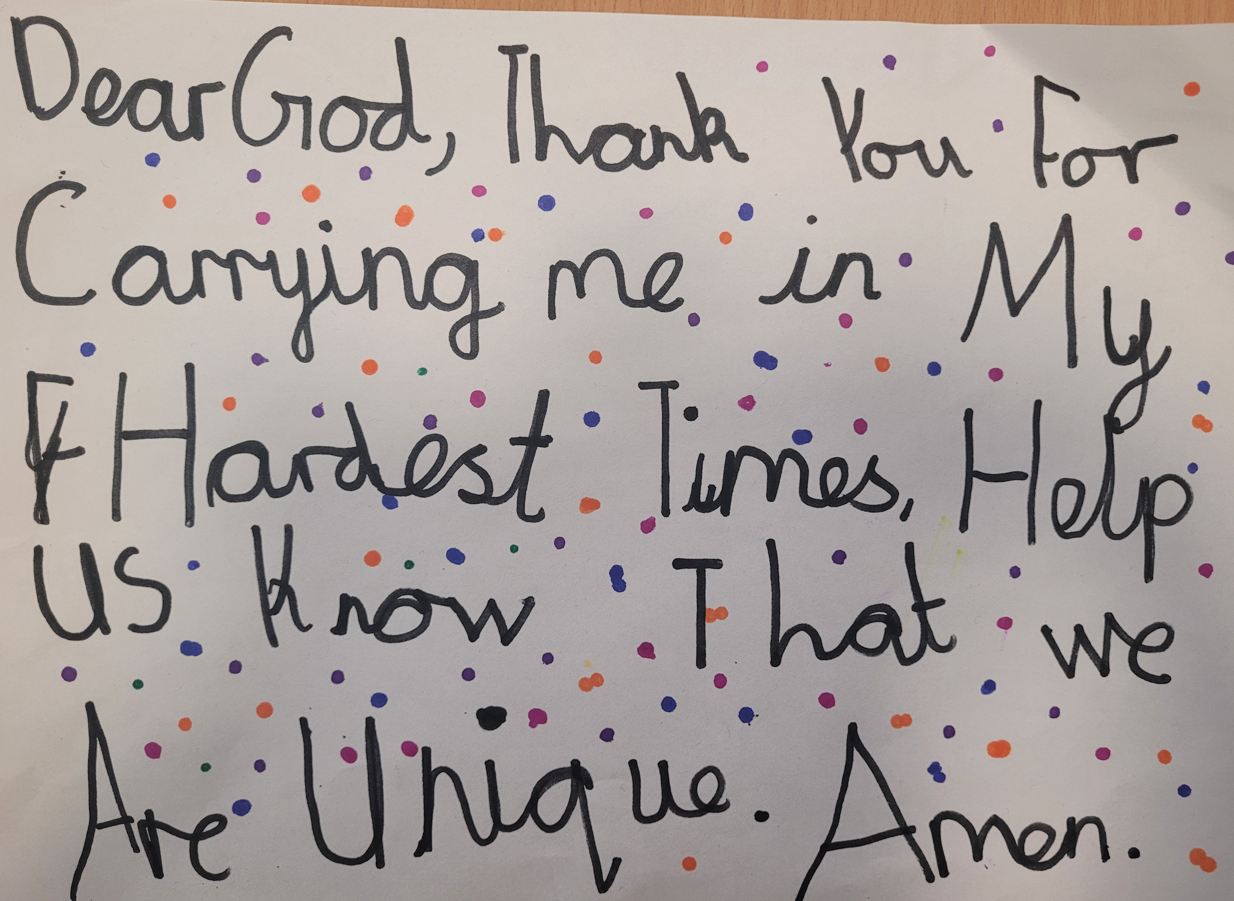 Dear God, Thank You For
Carrying me in My
Hardest Times, Help
us Know That we
Are Unique. Amen.